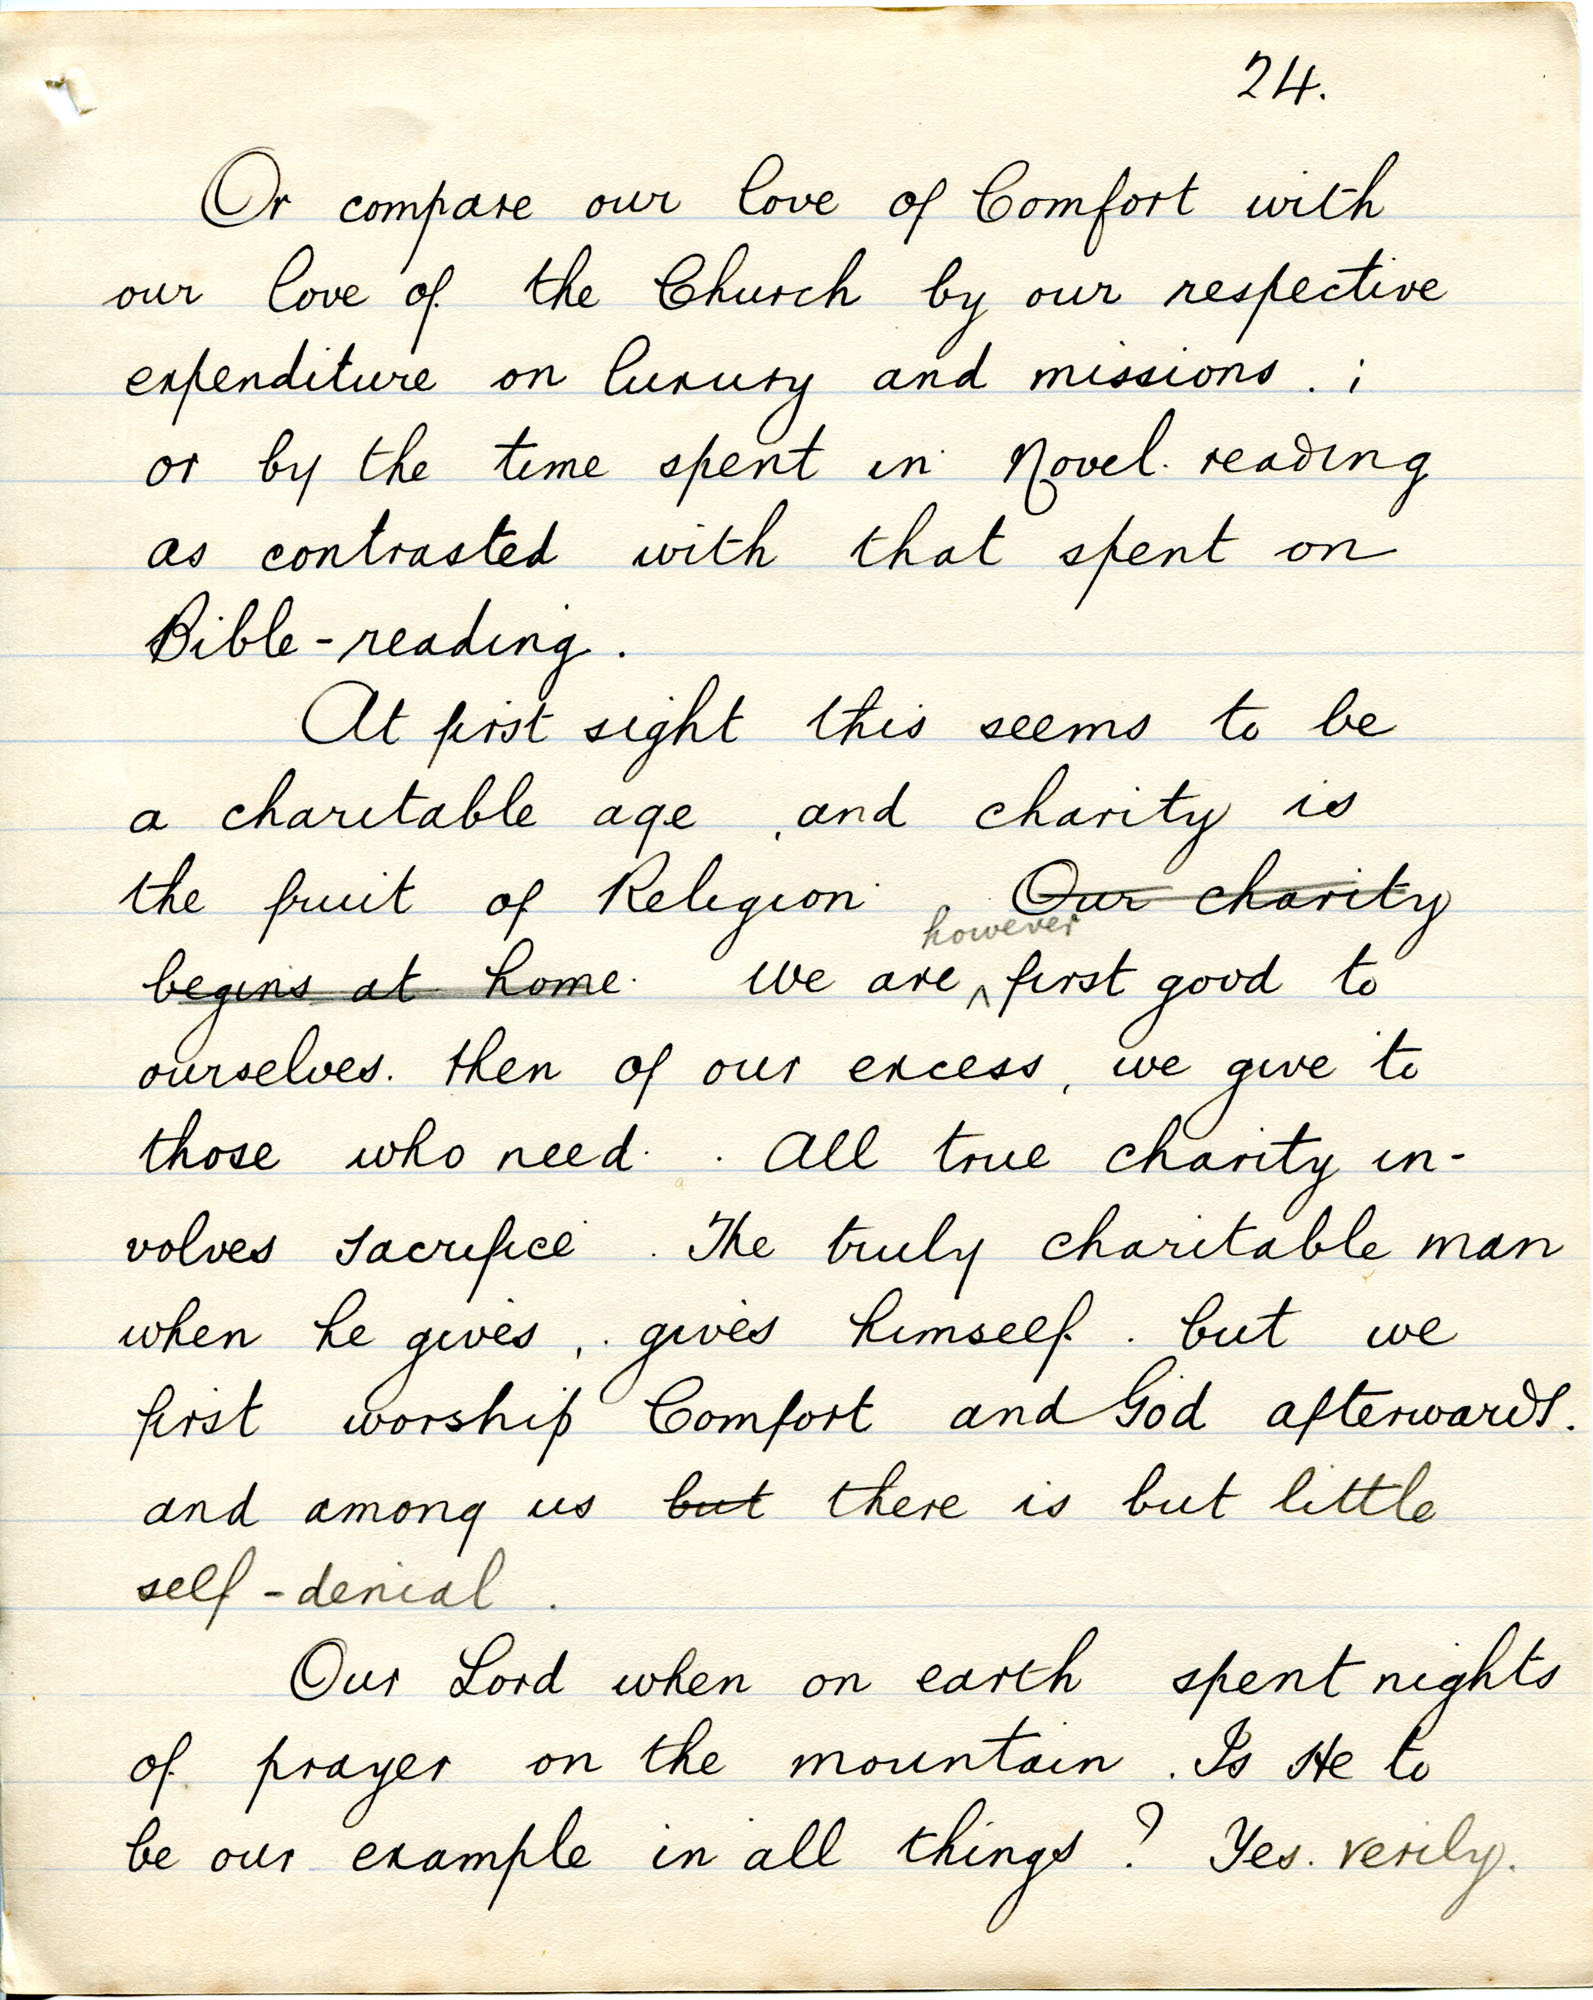 24.
Or compare our love of Comfort with
our love of the Church by our respective
expenditure on luxury and missions. ;
or by the time spent in Novel-reading
as contrasted with that spent on
Bible-reading.
At first sight this seems to be
a charitable age, and charity is
the fruit of Religion. Our charity
begins at home. We are however first good to
ourselves. then of our excess, we give to
those who need. All true charity in-
volves sacrifice. The truly charitable man
when he gives, gives himself. but we
first worship Comfort and God afterwards.
and among us but there is but little
self-denial.
Our Lord when on earth spent nights
of prayer on the mountain. Is He to
be our example in all things? Yes. verily.